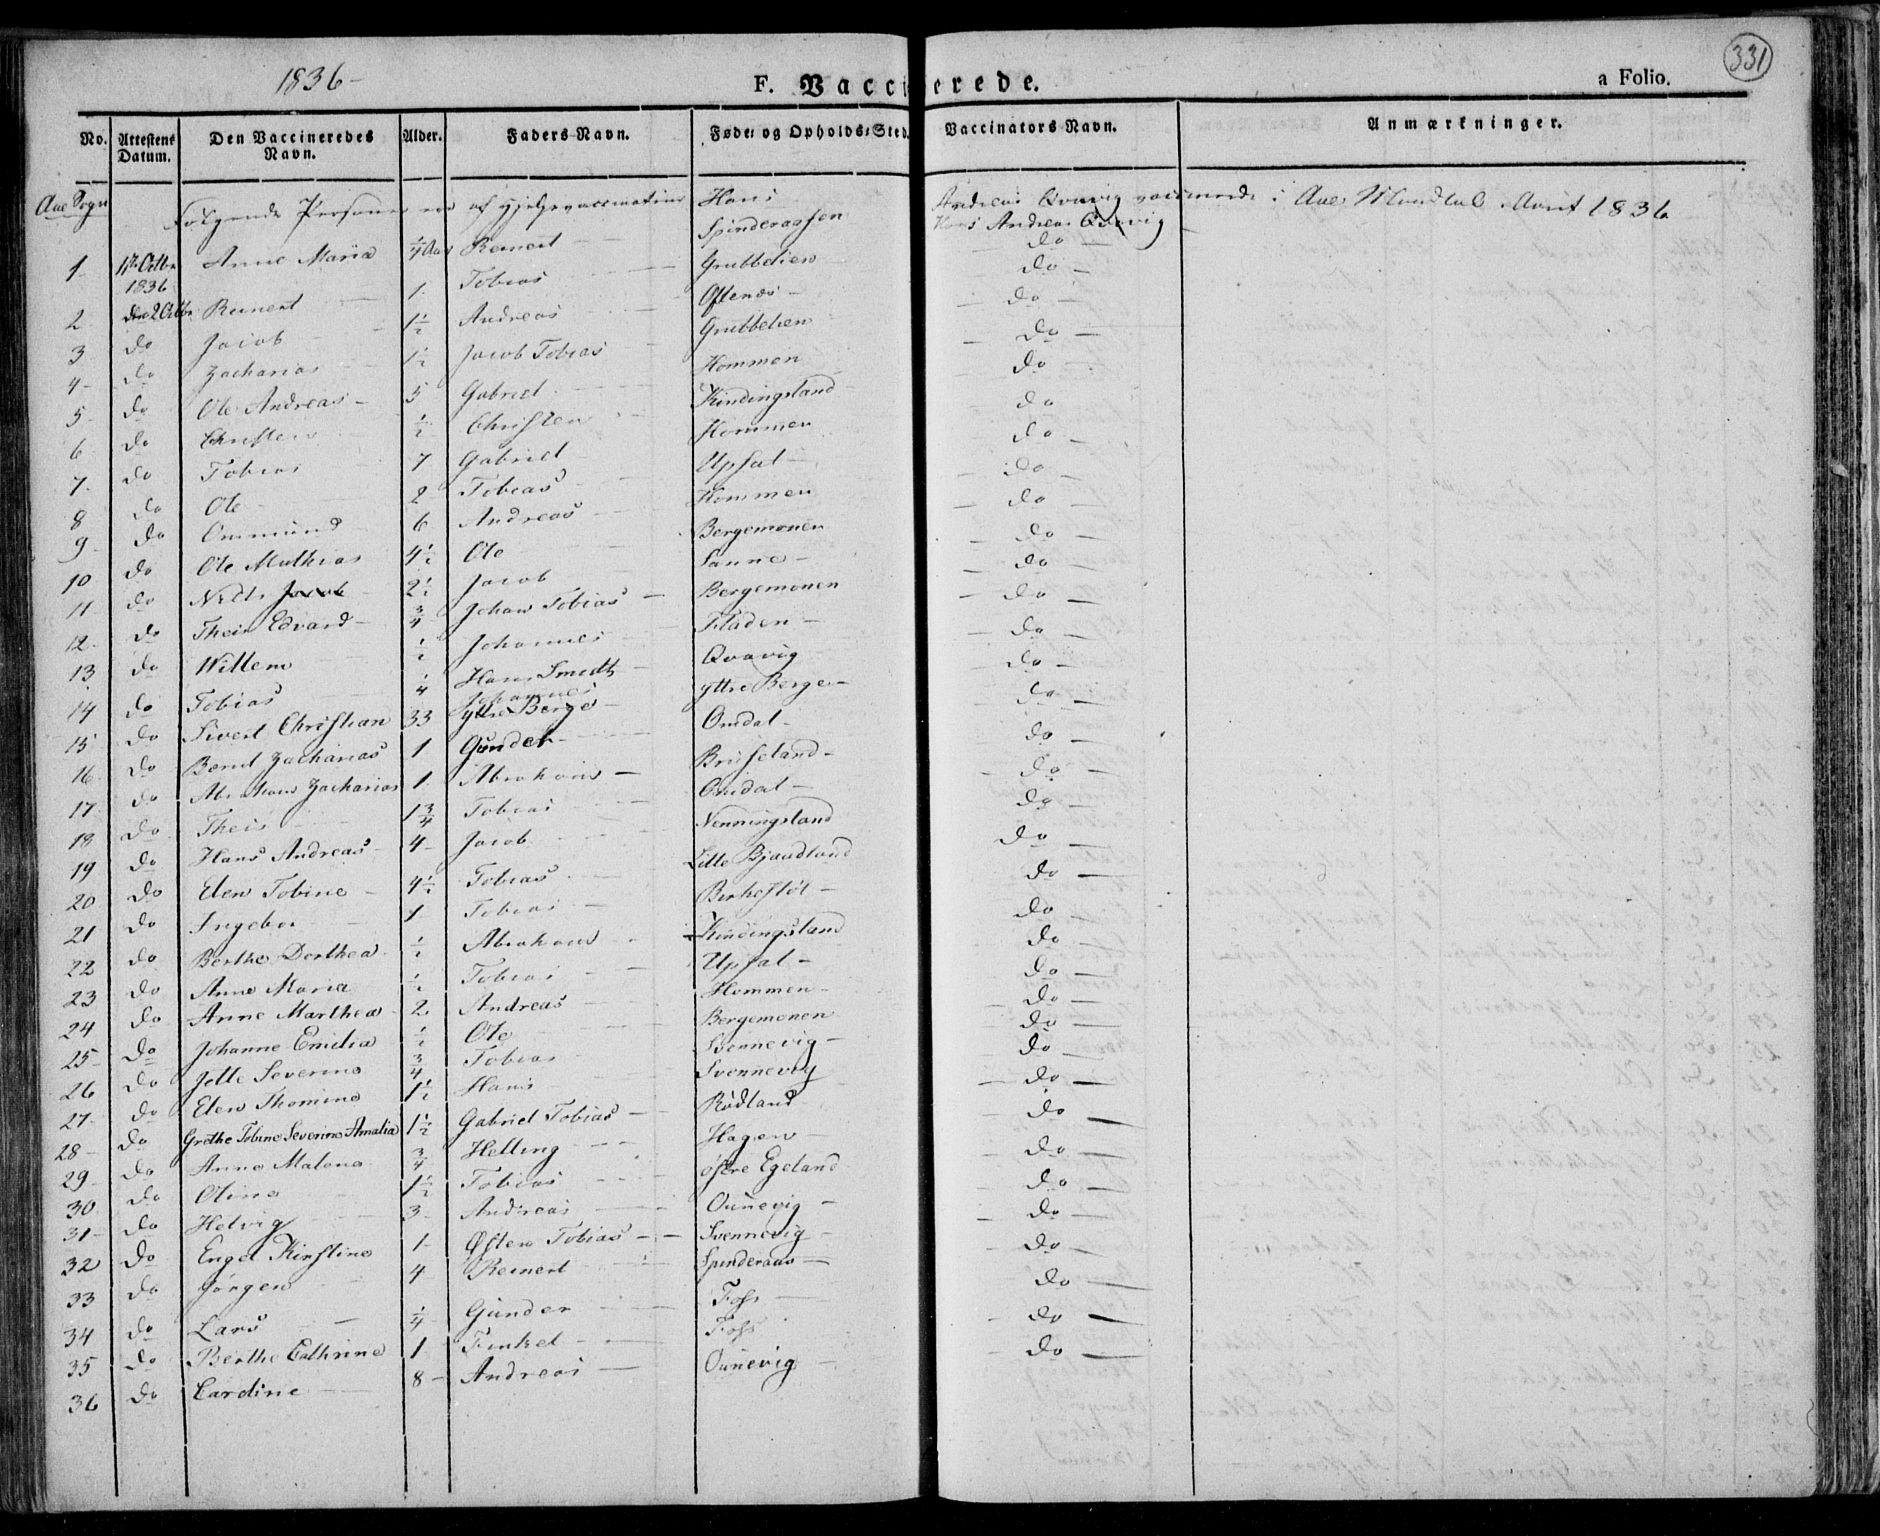 331
1836 -
F. Vaccinerede.
a Folio.
No. Attestens Datum. Den Vaccineredes Navn. Alder. Faders Navn. Føde- og Opholds-Sted. Vaccinators Navn. Anmærkninger.
Aae Sogn Følgende Personer ere af Hjelpevaccinatør Hans Andreas Qvavig vaccinerede i Aae 1836
1. 1836 Anne Maria 1/4 Aar Reinert Spinderaasen Hans Andreas Qvavig
2 den 2 Octbr Reinert 1. Tobias Grubbelien do -
3 do Jacob 1 1/2 Andreas Oftenæs - do -
4 - do Zacharias 1 1/2 Jacob Tobias Grubbelien do -
5 - do Ole Andreas - 5 Gabriel Hommen do -
6 do Christen 1/2 Christen Kindingsland do -
7. do Tobias 7 Gabriel Hommen do -
8 do Ole 2 Tobias Upsal - do -
9 do Ommund 6 Andreas Hommen do -
10 do Ole Mathias 4 1/2 Ole Bergemonen do -
11 do Niels Jacob 2 1/2 Jacob Sanne - do -
12 do Theis Edvard - 3/4 Johan Tobias - Bergemonen do -
13 do Willem 1/2 Johannes Fladen - do -
14 do Tobias 1/4 Hans Smidt Qvavig do -
15 do Sivert Christian 33 Johannes Ytre Berge - Yttre Berge - do -
16 do Bernt Zacharias 1 Gunder - Omdal - do -
17 do Abraham Zacharias 1. Abraham - Bruseland - do -
18 do Theis 1 3/4 Tobias Omdal - do -
19 do Hans Andreas - 4 - Jacob Nenningsland do -
20 do Elen Tobine - 4 1/2 Tobias Lille Bjaadland do -
21 do Ingebor 1 Tobias Birkestøl - do -
22 do Berthe Dorthea - 1/2 Abraham Kindingsland do -
23 do Anne Maria 1/2 Tobias Upsal - do -
24 do Anne Marthea 2 Andreas Hommen - do -
25 - do Johanne Emilia 1/2 Ole Bergemonen do -
26 do Jelle Severine 3/4 Tobias Svennevig - do -
27 - do Elen Thomine 1 1/2 Hans Svennevig do -
28 - do Grethe Tobine Severine Amalia 1 1/2 Gabriel Tobias - Rødland do -
29 - do Anne Malene 3/4 Helling Hagen do -
30 do Oline 1 1/2 Tobias østre Egeland do -
31 - do Helvig 3 - Andreas Ounevig - do -
32 do Engel Kirstine 1 - Østen Tobias - - Svennevig - do -
33 do Jørgen 4 Reinert Spinderaas - do -
34 do Lars 1/4 Gunder Foss - do -
35 do Berthe Cathrine 1 Finkel Foss do -
36 do Cardine 8 - Andreas Ounevig - do -